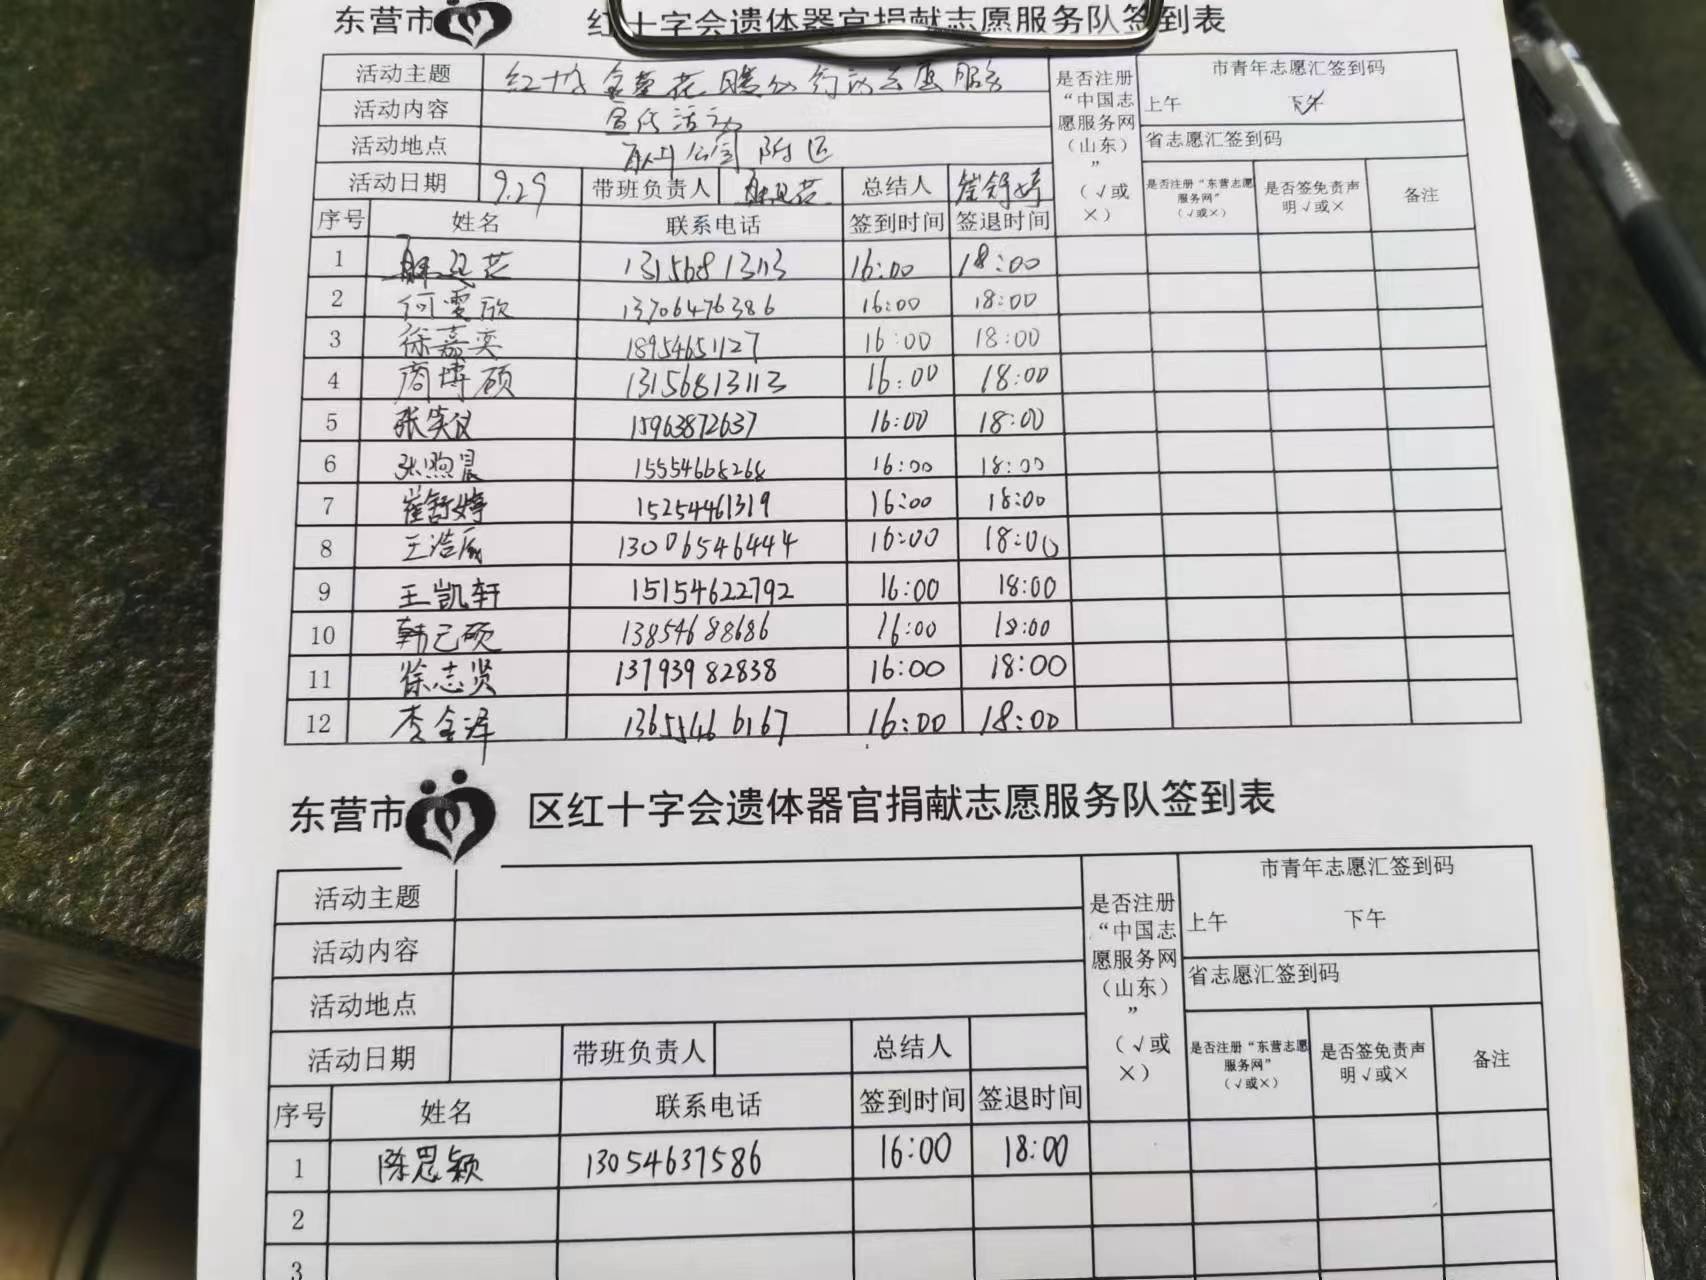 东营市 红十字会遗体器官捐献志愿服务队签到表
活动主题 红十字
活动内容 宣传活动
活动地点 公司附近
活动日期 9.29 带班负责人 总结人 崔舒婷
是否注册“中国志愿服务网（山东）”（√或×）
市青年志愿汇签到码
上午 下午
省志愿汇签到码
是否注册“东营志愿服务网”（√或×） 是否签免责声明√或× 备注
序号 姓名 联系电话 签到时间 签退时间
1 13156813113 16:00 18:00
2 何雯欣 13706476386 16:00 18:00
3 徐嘉奕 18954651127 16:00 18:00
4 商博硕 13156813113 16:00 18:00
5 张笑仪 15963872637 16:00 18:00
6 张煦晨 15554668268 16:00 18:00
7 崔舒婷 15254461319 16:00 18:00
8 王浩辰 13006546444 16:00 18:00
9 王凯轩 15154622792 16:00 18:00
10 韩己硕 13854688686 16:00 18:00
11 徐志贤 13793982838 16:00 18:00
12 李金泽 13655466167 16:00 18:00
东营市 区红十字会遗体器官捐献志愿服务队签到表
活动主题
活动内容
活动地点
活动日期 带班负责人 总结人
是否注册“中国志愿服务网（山东）”（√或×）
市青年志愿汇签到码
上午 下午
省志愿汇签到码
是否注册“东营志愿服务网”（√或×） 是否签免责声明√或× 备注
序号 姓名 联系电话 签到时间 签退时间
1 陈思颖 13054637586 16:00 18:00
2
3